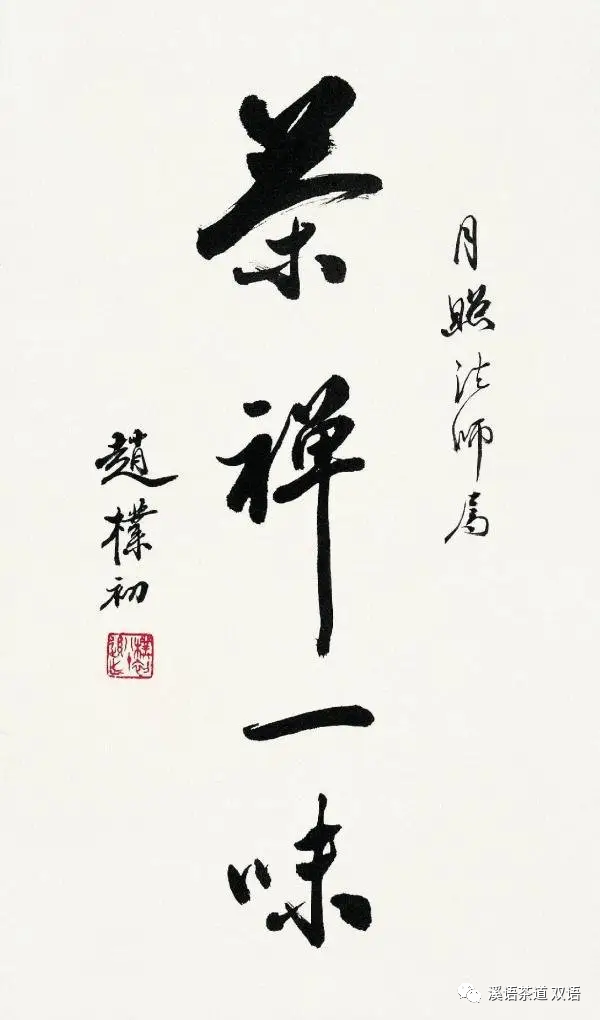 月照法师属
茶禅一味
趙樸初
溪语茶道 双语